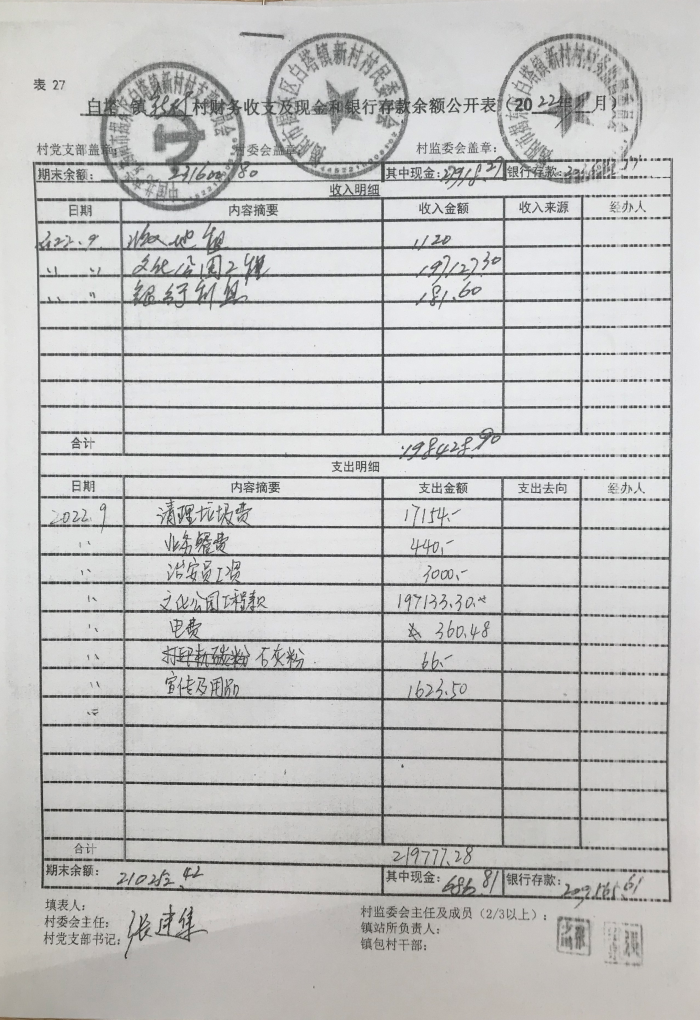 表 27
白塔 镇 新村 村财务收支及现金和银行存款余额公开表（2022年9月）
村党支部盖章： 村委会盖章： 村监委会盖章：
期末余额： 231600.80 其中现金：27918.27 银行存款：
收入明细
日期 内容摘要 收入金额 收入来源 经办人
2022.9. 收地租 1120
〃 〃 文化公园工程 197127.30
〃 〃 银行利息 181.60
合计 198428.90
支出明细
日期 内容摘要 支出金额 支出去向 经办人
2022.9 清理垃圾费 17154.-
〃 业务餐费 440.-
〃 治安员工资 3000.-
〃 文化公园工程款 197133.30
〃 电费 360.48
〃 打印机碳粉 石灰粉 66.-
〃 宣传及用品 1623.50
〃
合计 219777.28
期末余额： 210252.42 其中现金：686.81 银行存款：209565.61
填表人：
村委会主任： 村监委会主任及成员（2/3以上）：
村党支部书记： 张建集 镇站所负责人：
镇包村干部：